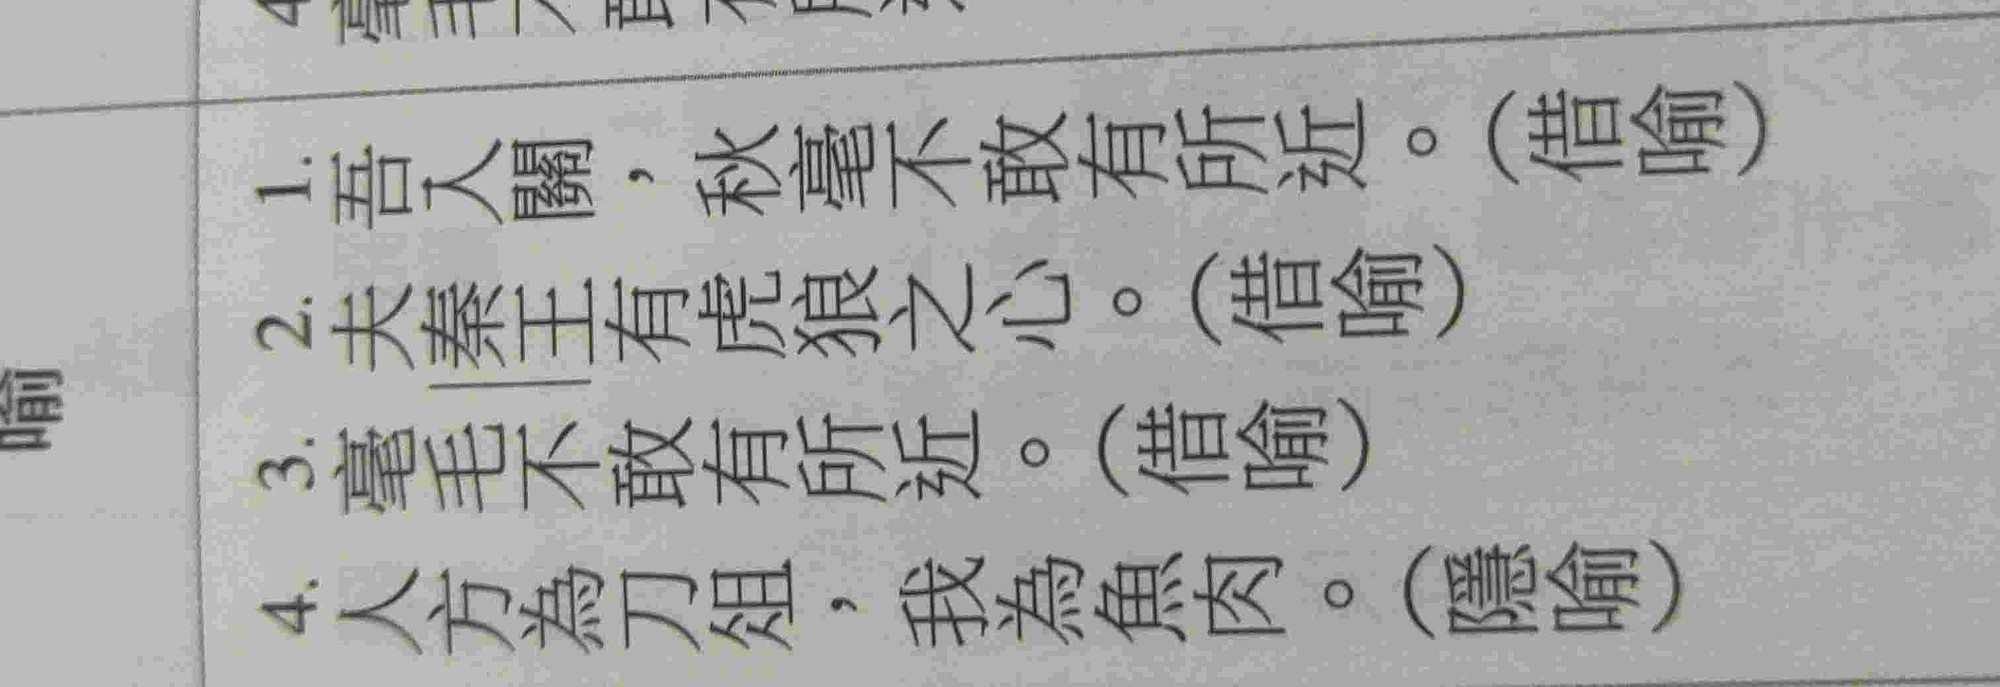 喻
1. 吾入關，秋毫不敢有所近。（借喻）
2. 夫秦王有虎狼之心。（借喻）
3. 毫毛不敢有所近。（借喻）
4. 人方為刀俎，我為魚肉。（隱喻）